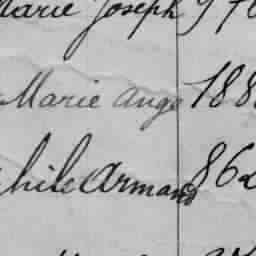 Marie Joseph 9
Marie Ange 188
phile Armand 862